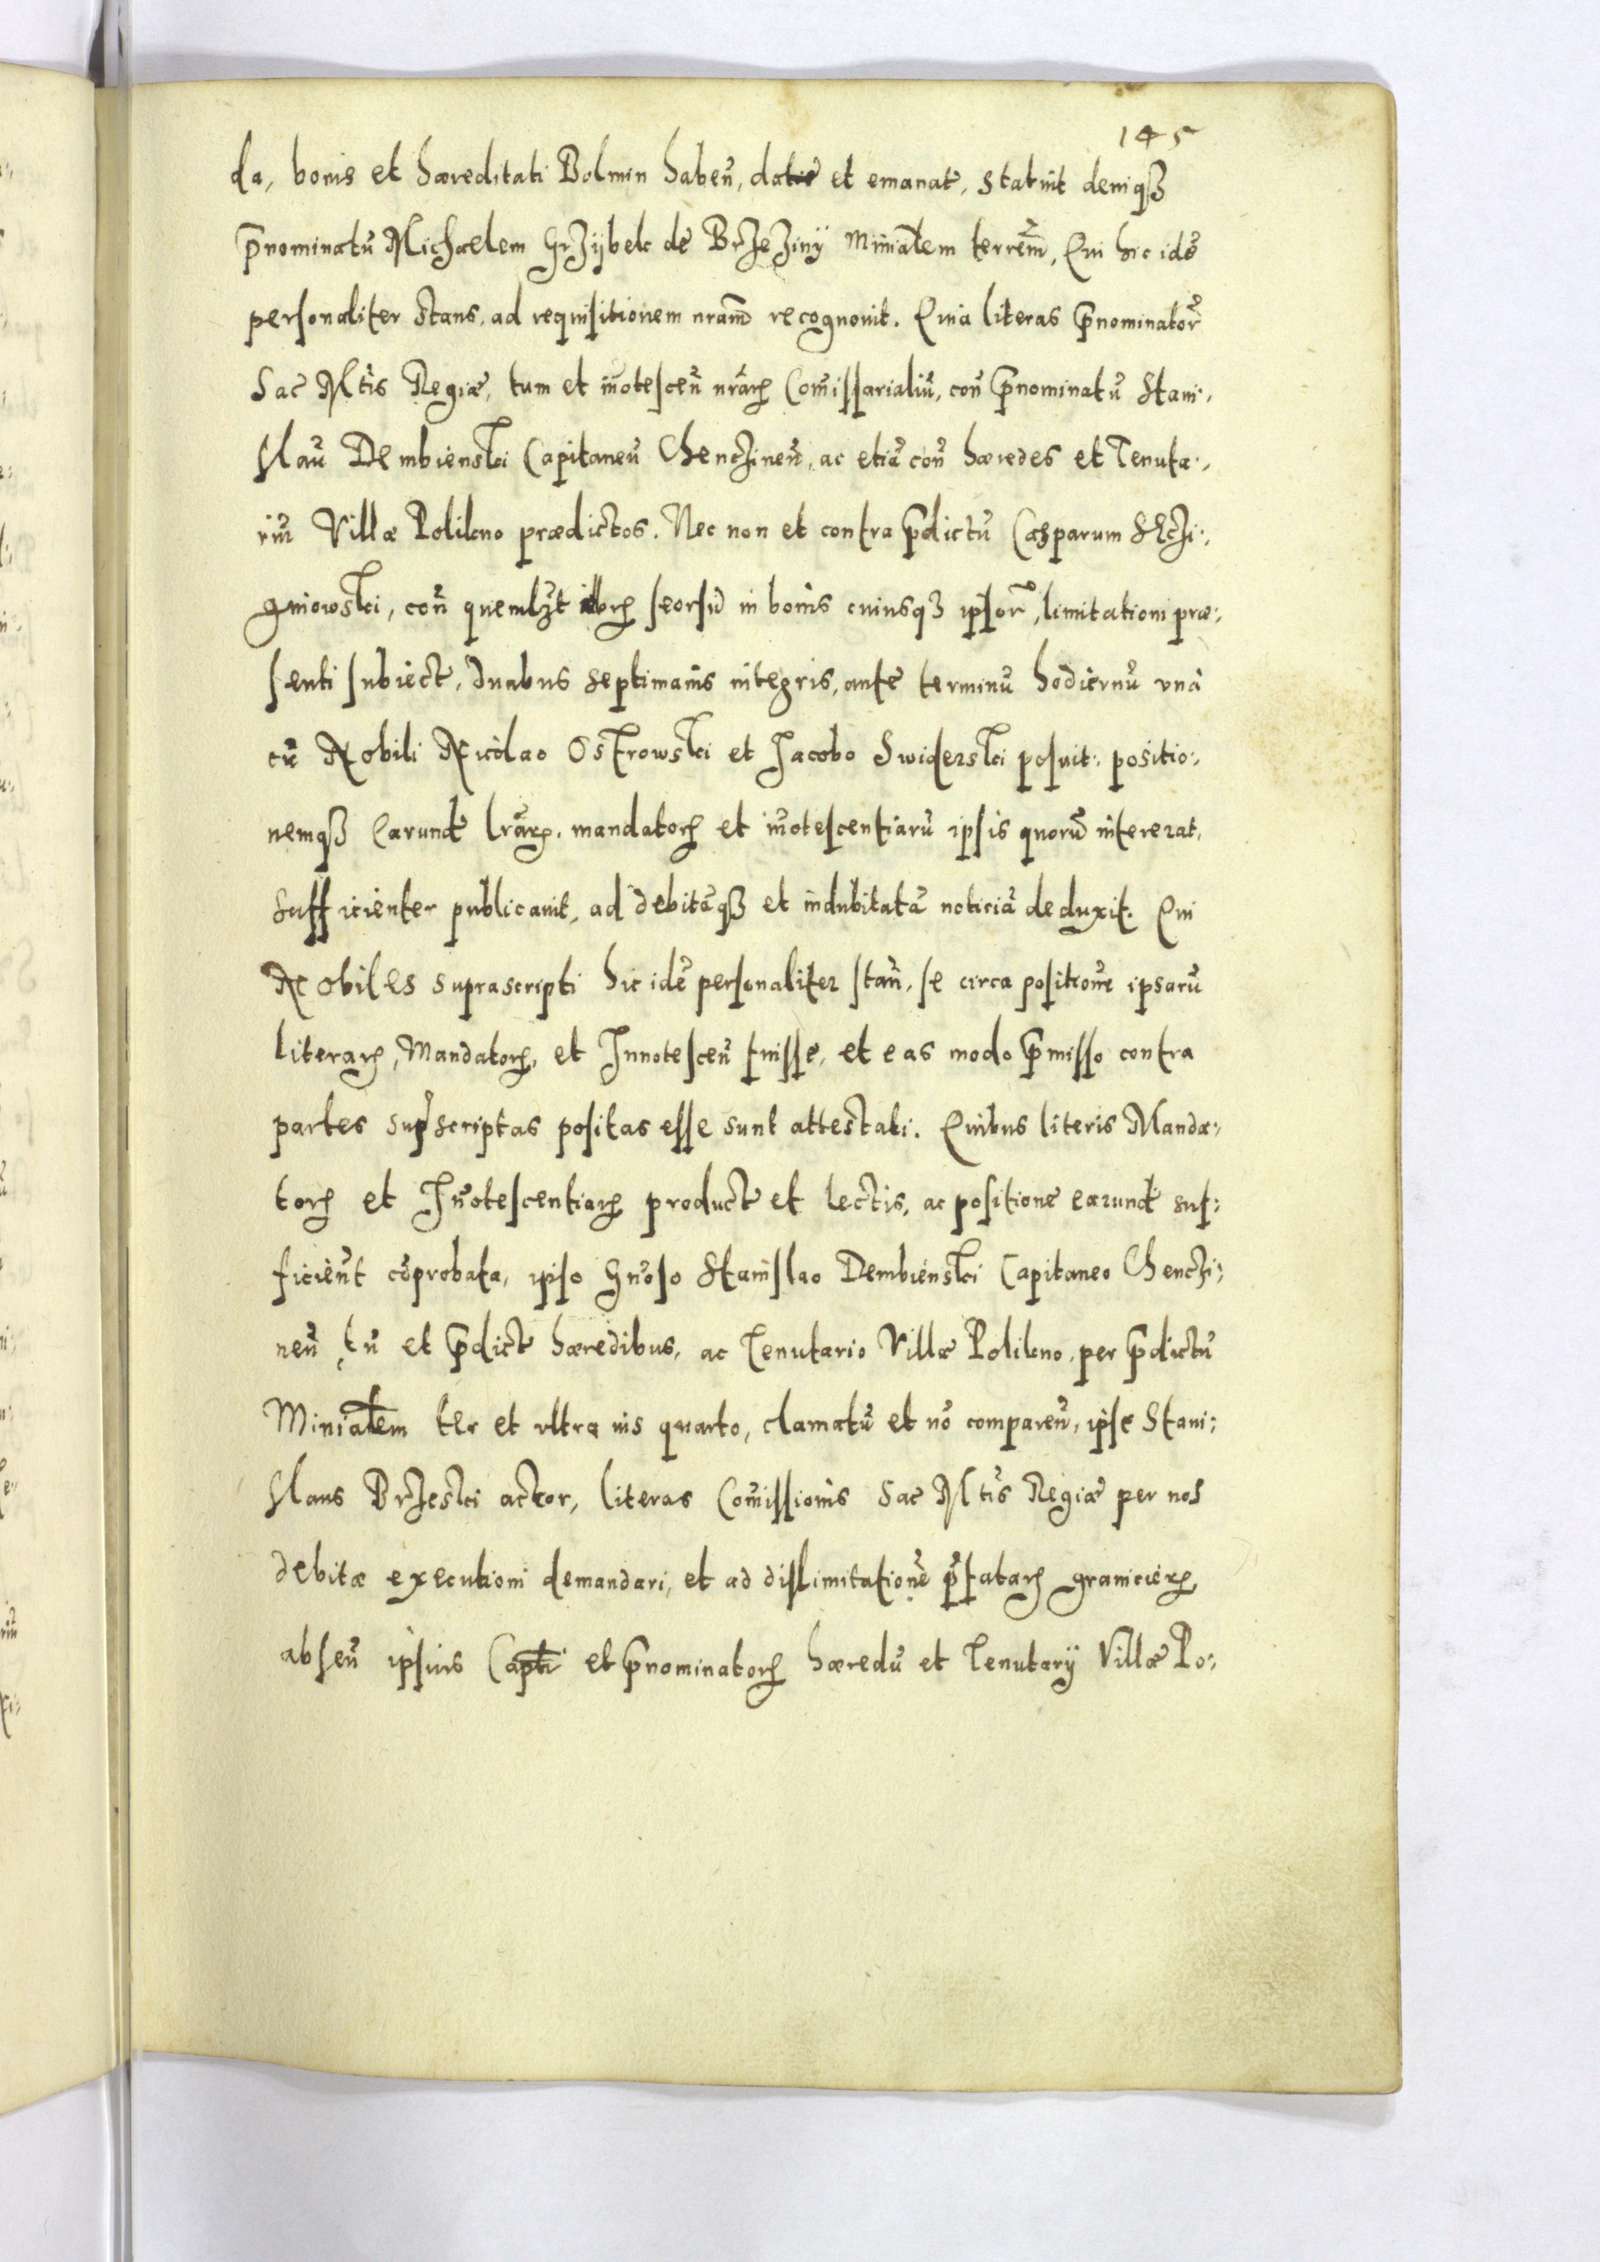 145
da, bonis et hæreditati Bolmin habeñ, datis et emanat̃, statuit deniqꝫ
p̃nominatũ Michaelem Grzÿbek de Brzezinÿ Minĩalem terrẽm, Qui hic idẽ
personaliter stans, ad requisitionem nram̃ recognouit. Quia literas p̃nominator̃
Sac Mt̃is Regiæ, tum et iñotesceñ nr̃aꝝ Com̃issarialiũ, coñ p̃nominatũ Stani:
slaũ Dembienski Capitaneũ Chencineñ, ac etiã coñ hæredes et Tenuta:
riũ Villæ Polikno prædictos. Nec non et contra p̃dictũ Casparum Sczi:
gniowski, coñ quemlꝫt illoꝝ seorsũ in bonis cuiusqꝫ ipsor̃, limitationi præ:
senti subiect̃, duabus septimanis integris, ante terminũ hodiernũ vnà
cũ Nobili Nicolao Ostrowski et Jacobo Swiderski posuit: positio:
nemqꝫ earund̃ lr̃aꝝ, mandatoꝝ et iñotescentiarũ ipsis quorũ intererat,
sufficienter publicauit, ad debitãqꝫ et indubitatã noticiã deduxit. Qui
Nobiles suprascripti hic idẽ personaliter stañ, se circa positionẽ ipsarũ
literaꝝ, Mandatoꝝ, et Innotesceñ fuisse, et eas modo p̃misso contra
partes sup̃scriptas positas esse sunt attestati. Quibus literis Manda:
toꝝ et Iñotescentiaꝝ product̃ et lectis, ac positione earund̃ suf:
ficieñt cõprobata, ipso Gñoso Stanislao Dembienski Capitaneo Chenczi:
neñ tũ et p̃dict̃ hæredibus, ac Tenutario Villæ Polikno, per p̃dictũ
Minialem ter et vltra uis quarto, clamatũ et nõ compareñ, ipse Stani:
slaus Brzeski actor, literas Com̃issionis Sac Mt̃is Regiæ per nos
debitæ executioni demandari, et ad dislimitationẽ p̃fataꝝ granicieꝝ,
abseñ ipsius Capti et p̃nominatoꝝ hæredũ et Tenutarÿ Villæ Po: